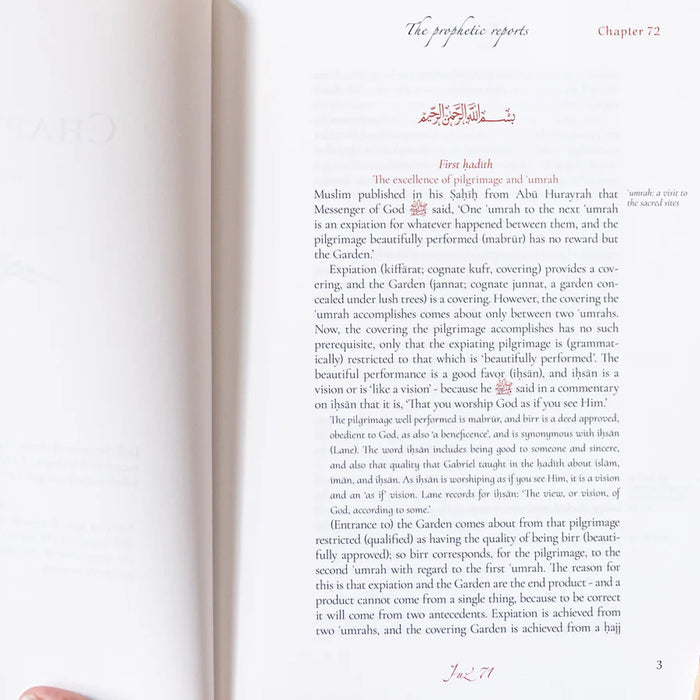 The prophetic reports
Chapter 72
بسم الله الرحمن الرحيم
First ḥadīth
The excellence of pilgrimage and ʿumrah
Muslim published in his Ṣaḥīḥ from Abū Hurayrah that
Messenger of God ﷺ said, ‘One ʿumrah to the next ʿumrah
is an expiation for whatever happened between them, and the
pilgrimage beautifully performed (mabrūr) has no reward but
the Garden.’
ʿumrah: a visit to
the sacred sites
Expiation (kiffārat; cognate kufr, covering) provides a cov-
ering, and the Garden (jannat; cognate junnat, a garden con-
cealed under lush trees) is a covering. However, the covering the
ʿumrah accomplishes comes about only between two ʿumrahs.
Now, the covering the pilgrimage accomplishes has no such
prerequisite, only that the expiating pilgrimage is (grammat-
ically) restricted to that which is ‘beautifully performed’. The
beautiful performance is a good favor (iḥsān), and iḥsān is a
vision or is ‘like a vision’ - because he ﷺ said in a commentary
on iḥsān that it is, ‘That you worship God as if you see Him.’
The pilgrimage well performed is mabrūr, and birr is a deed approved,
obedient to God, as also ‘a beneficence’, and is synonymous with iḥsān
(Lane). The word iḥsān includes being good to someone and sincere,
and also that quality that Gabriel taught in the ḥadīth about islām,
īmān, and iḥsān. As iḥsān is worshiping as if you see Him, it is a vision
and an ‘as if’ vision. Lane records for iḥsān: ‘The view, or vision, of
God, according to some.’
(Entrance to) the Garden comes about from that pilgrimage
restricted (qualified) as having the quality of being birr (beauti-
fully approved); so birr corresponds, for the pilgrimage, to the
second ʿumrah with regard to the first ʿumrah. The reason for
this is that expiation and the Garden are the end product - and a
product cannot come from a single thing, because to be correct
it will come from two antecedents. Expiation is achieved from
two ʿumrahs, and the covering Garden is achieved from a ḥajj
Juz’ 71
3